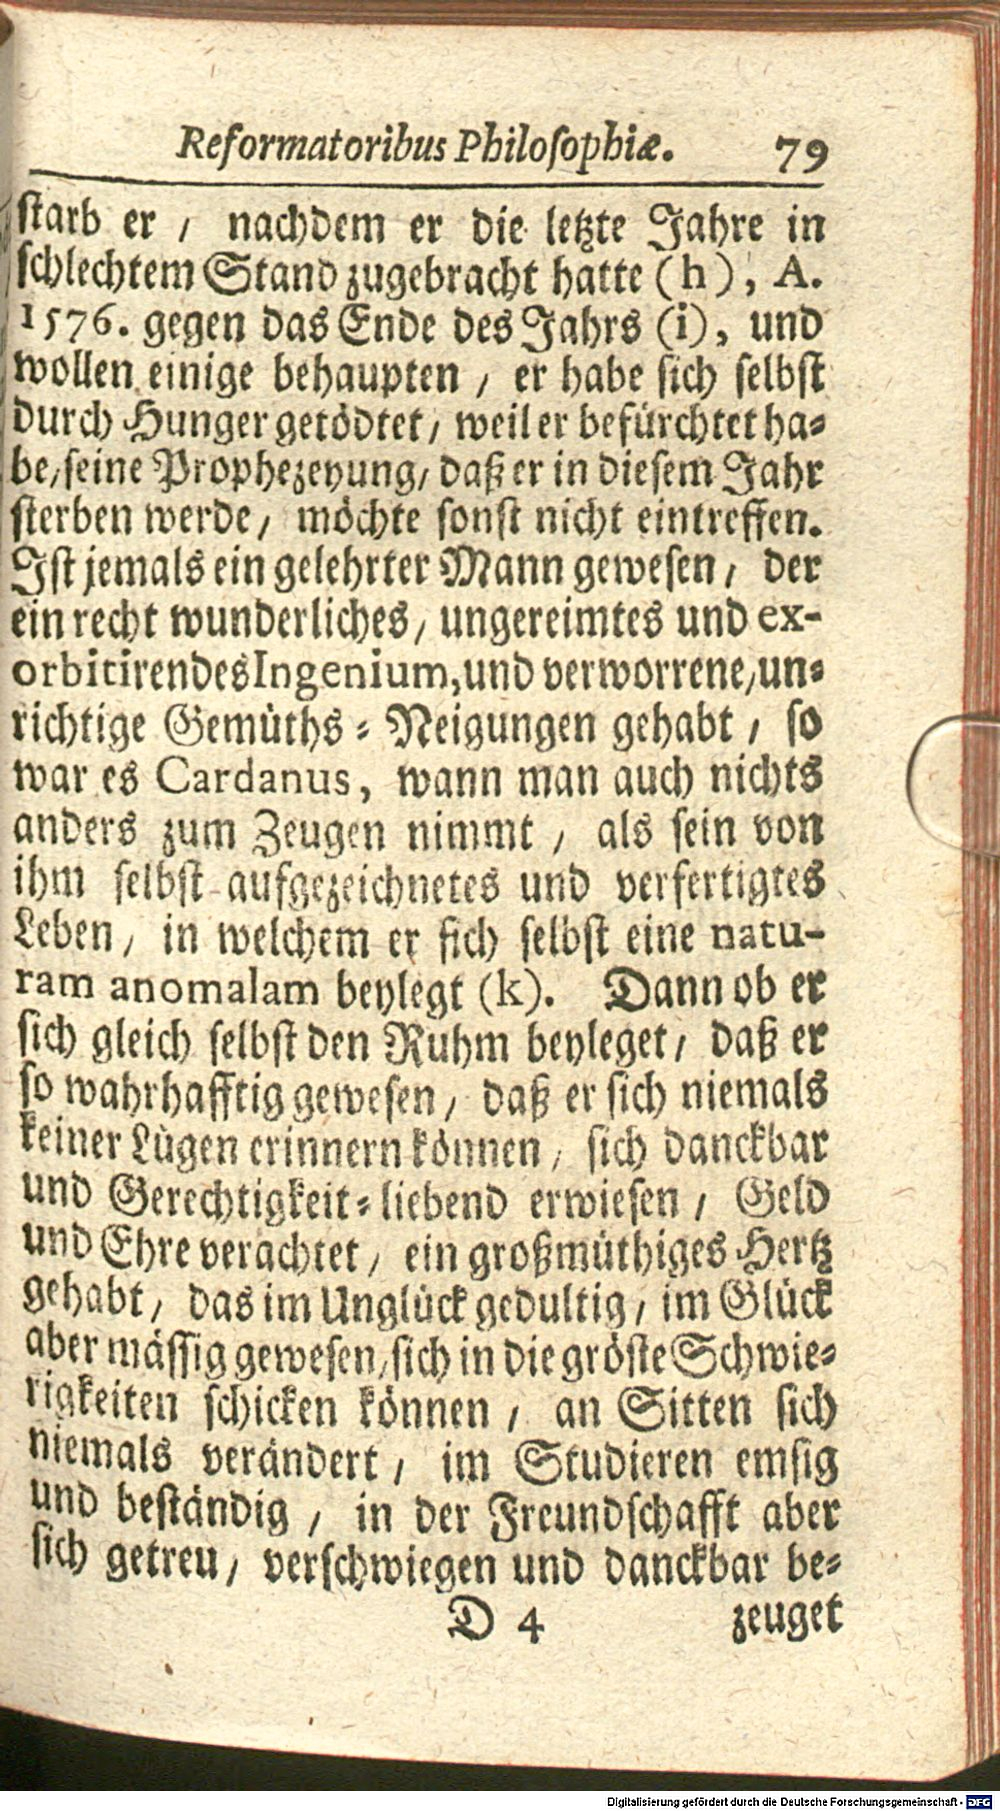 Reformatoribus Philoſophiæ. 79
ſtarb er / nachdem er die letzte Jahre in
ſchlechtem Stand zugebracht hatte (h), A.
1576. gegen das Ende des Jahrs (i), und
wollen einige behaupten / er habe ſich ſelbſt
durch Hunger getödtet / weil er befürchtet ha-
be / ſeine Prophezeyung / daß er in dieſem Jahr
ſterben werde / möchte ſonſt nicht eintreffen.
Iſt jemals ein gelehrter Mann geweſen / der
ein recht wunderliches / ungereimtes und ex-
orbitirendes Ingenium, und verworrene / un-
richtige Gemüths-Neigungen gehabt / ſo
war es Cardanus, wann man auch nichts
anders zum Zeugen nimmt / als ſein von
ihm ſelbſt aufgezeichnetes und verfertigtes
Leben / in welchem er ſich ſelbſt eine natu-
ram anomalam beylegt (k). Dann ob er
ſich gleich ſelbſt den Ruhm beyleget / daß er
ſo wahrhafftig geweſen / daß er ſich niemals
keiner Lügen erinnern können / ſich danckbar
und Gerechtigkeit-liebend erwieſen / Geld
und Ehre verachtet / ein großmüthiges Hertz
gehabt / das im Unglück gedultig / im Glück
aber mäſſig geweſen / ſich in die gröſte Schwie-
rigkeiten ſchicken können / an Sitten ſich
niemals verändert / im Studieren emſig
und beſtändig / in der Freundſchafft aber
ſich getreu / verſchwiegen und danckbar be-
D 4 zeuget
Digitalisierung gefördert durch die Deutsche Forschungsgemeinschaft - DFG